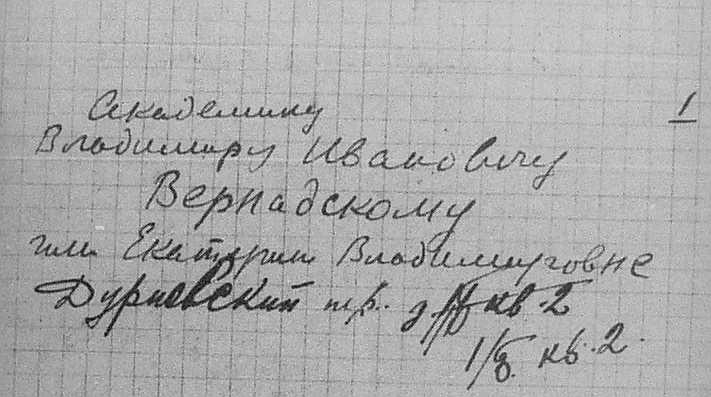 1
Академику
Владимиру Ивановичу
Вернадскому
или Екатерине Владимировне
Дурновский пр. д кв. 2
кв. 2.